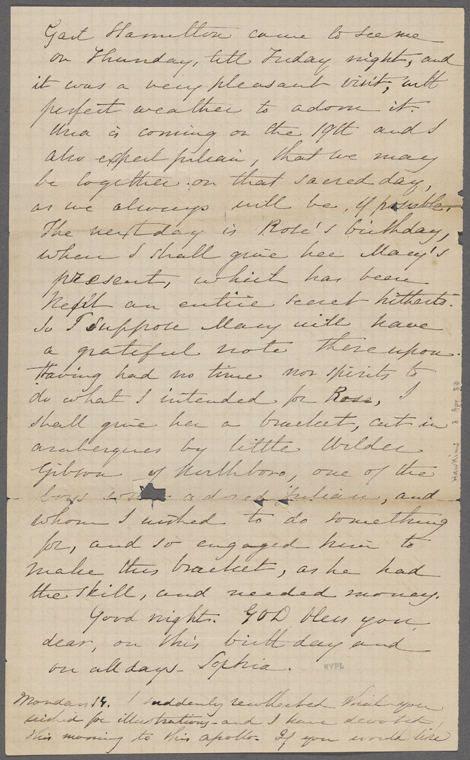 Gail Hamilton came to see me
on Thursday, till Friday night, and
it was a very pleasant visit, with
perfect weather to adorn it.
Una is coming on the 19th and I
also expect Julian, that we may
be together on that sacred day,
as we always will be, if possible.
The next day is Rose's birthday,
when I shall give her Mary's
present, which has been
kept an entire secret hitherto.
So I suppose Mary will have
a grateful note thereupon.
Having had no time nor spirits to
do what I intended for Rose, I
shall give her a bracket, cut in
arabesques by little Wilder
Gibson of Northboro, one of the
boys adores Julian, and
whom I wished to do something
for, and so engaged him to
make this bracket, as he had
the skill, and needed money.
Good night. GOD bless you
dear, on this birthday and
on all days - Sophia.
NYPL
Monday 14. I suddenly recollected that you
wished for illustrations - and I have devoted
this morning to this Apollo. If you would like